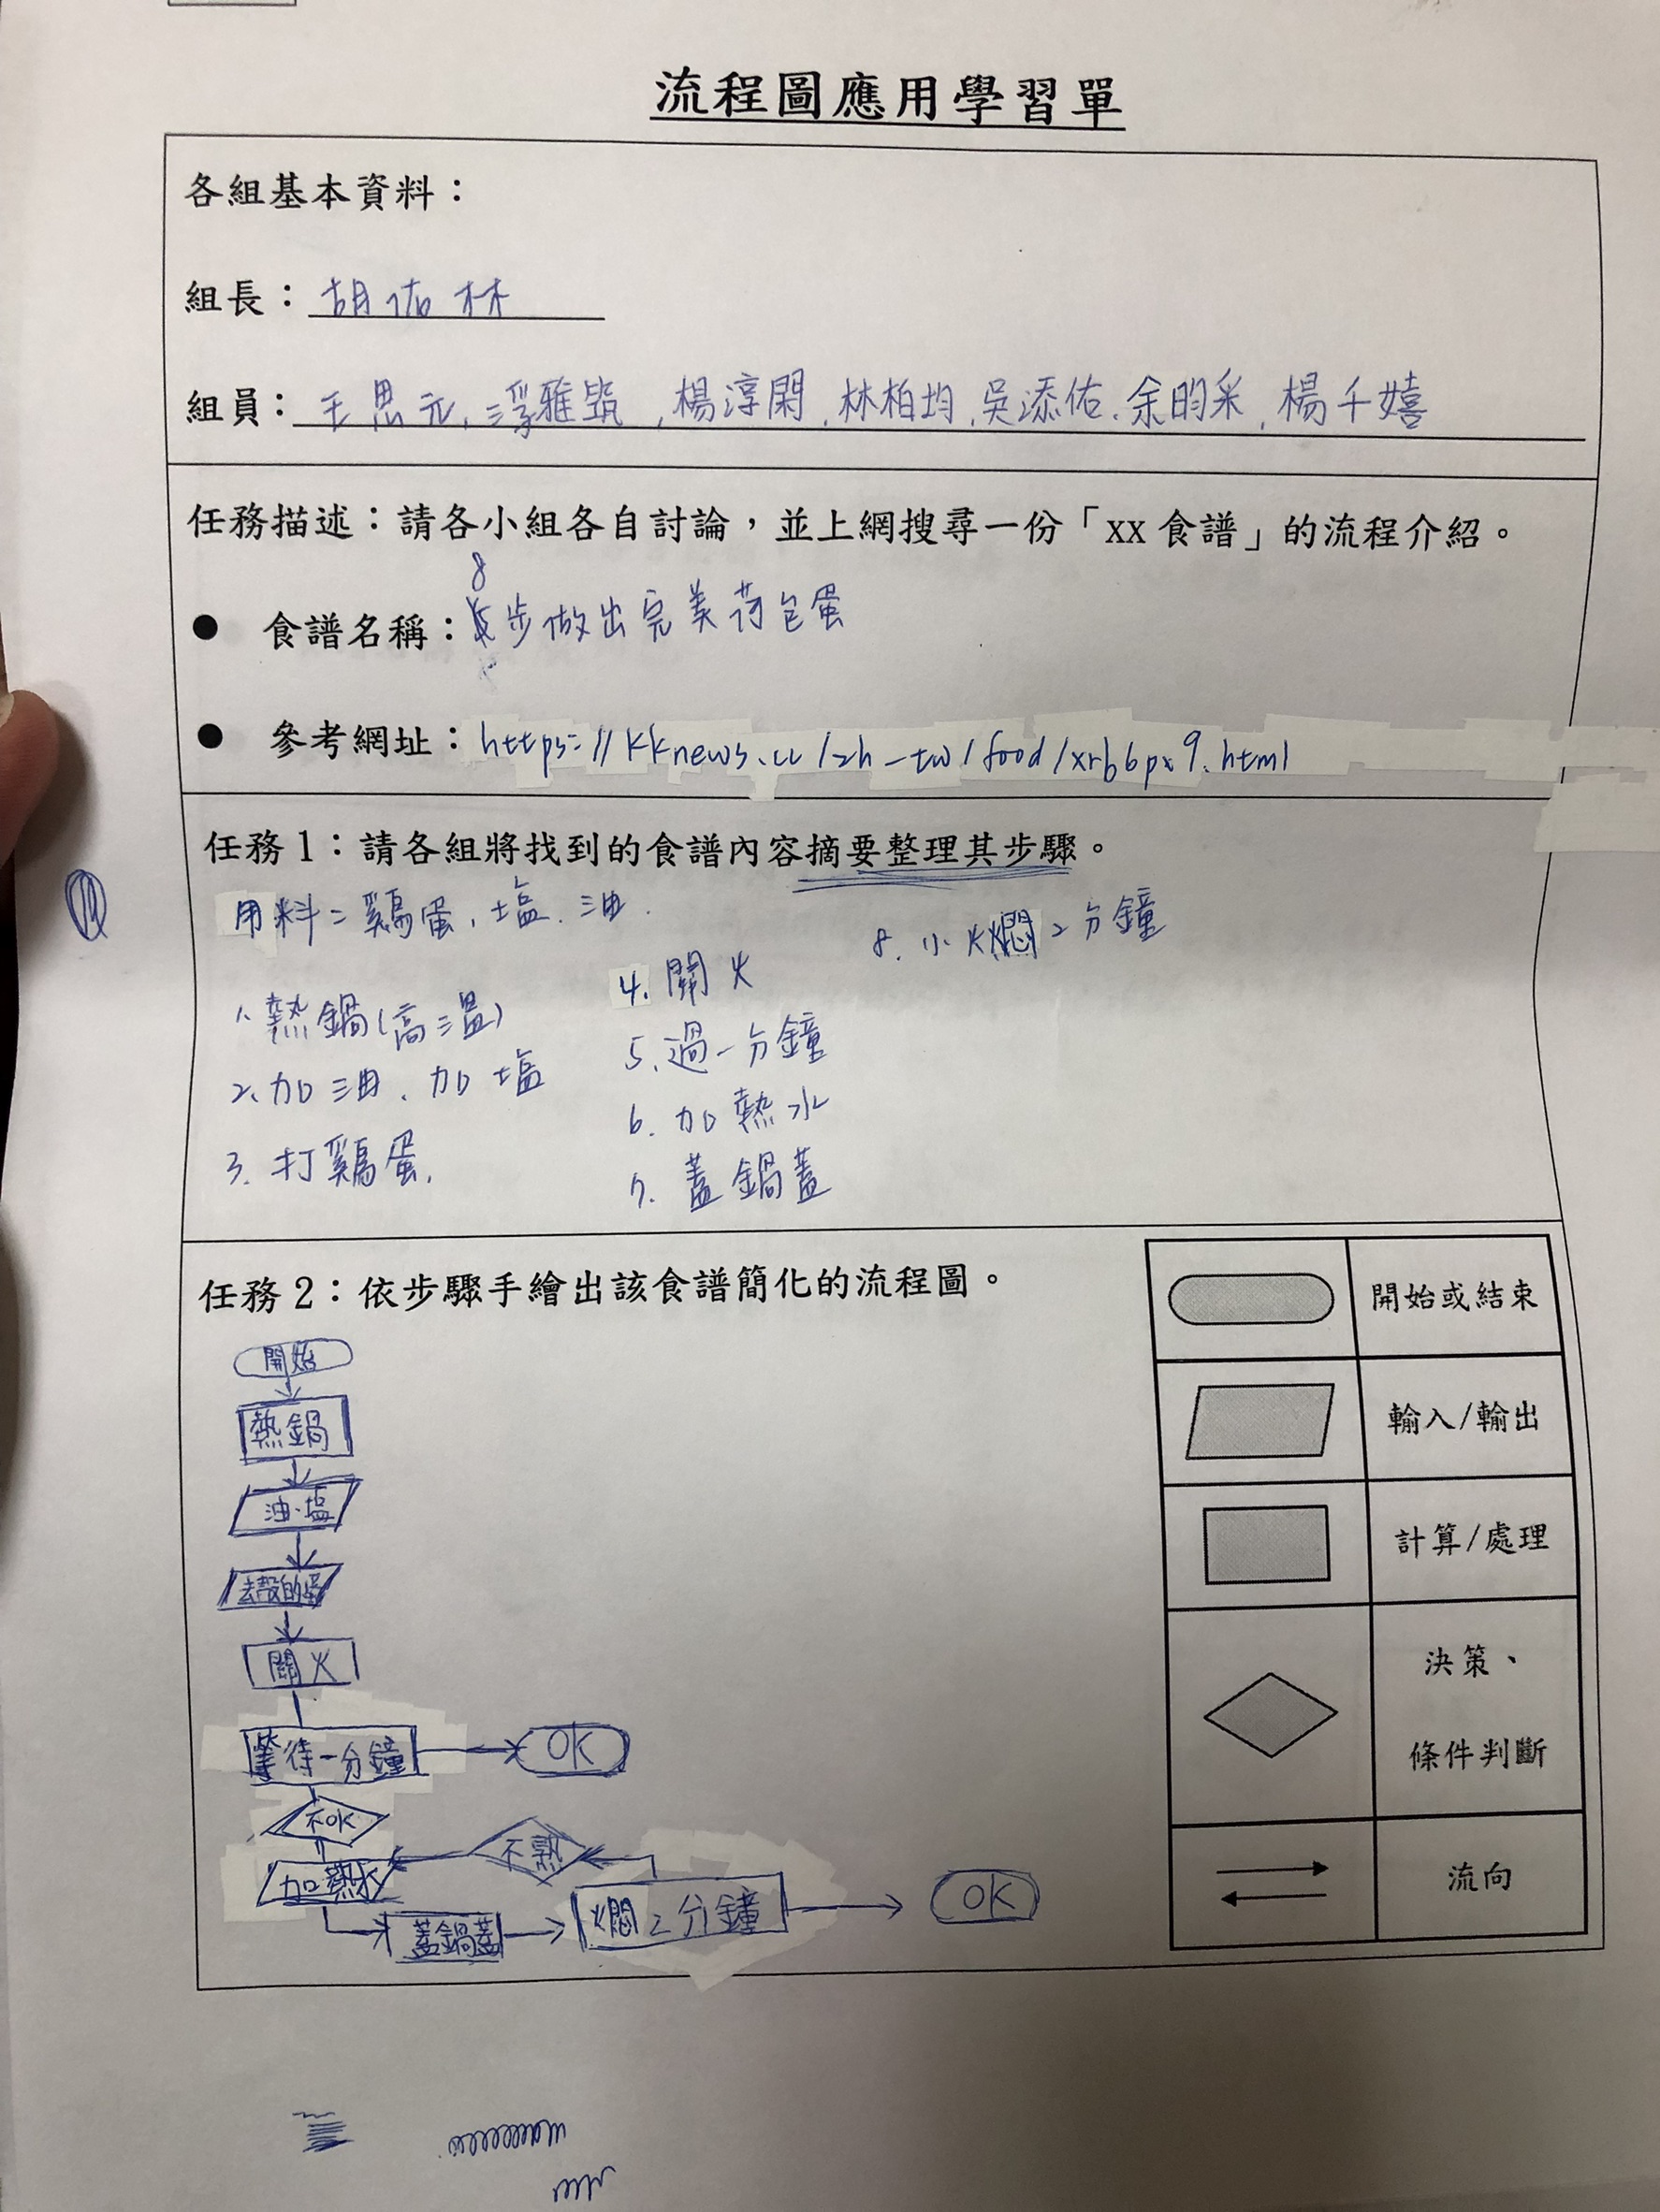 流程圖應用學習單
各組基本資料：
組長：胡佑林
組員：王思元、雅筑，楊淳閑，林柏均，吳添佑，余昀采，楊千嬉
任務描述：請各小組各自討論，並上網搜尋一份「xx 食譜」的流程介紹。
8
● 食譜名稱：步做出完美荷包蛋
● 參考網址：https://kknews.cc/zh-tw/food/xrb6px9.html
任務 1：請各組將找到的食譜內容摘要整理其步驟。
用料：雞蛋、塩、油
1. 熱鍋(高溫)
2. 加油、加塩
3. 打雞蛋.
4. 關火
5. 過一分鐘
6. 加熱水
7. 蓋鍋蓋
8. 小火燜2分鐘
任務 2：依步驟手繪出該食譜簡化的流程圖。
開始
熱鍋
油、塩
去殼的蛋
關火
等待一分鐘 OK
不OK
不熟
加熱水
蓋鍋蓋 燜2分鐘 OK
開始或結束
輸入/輸出
計算/處理
決策、
條件判斷
流向